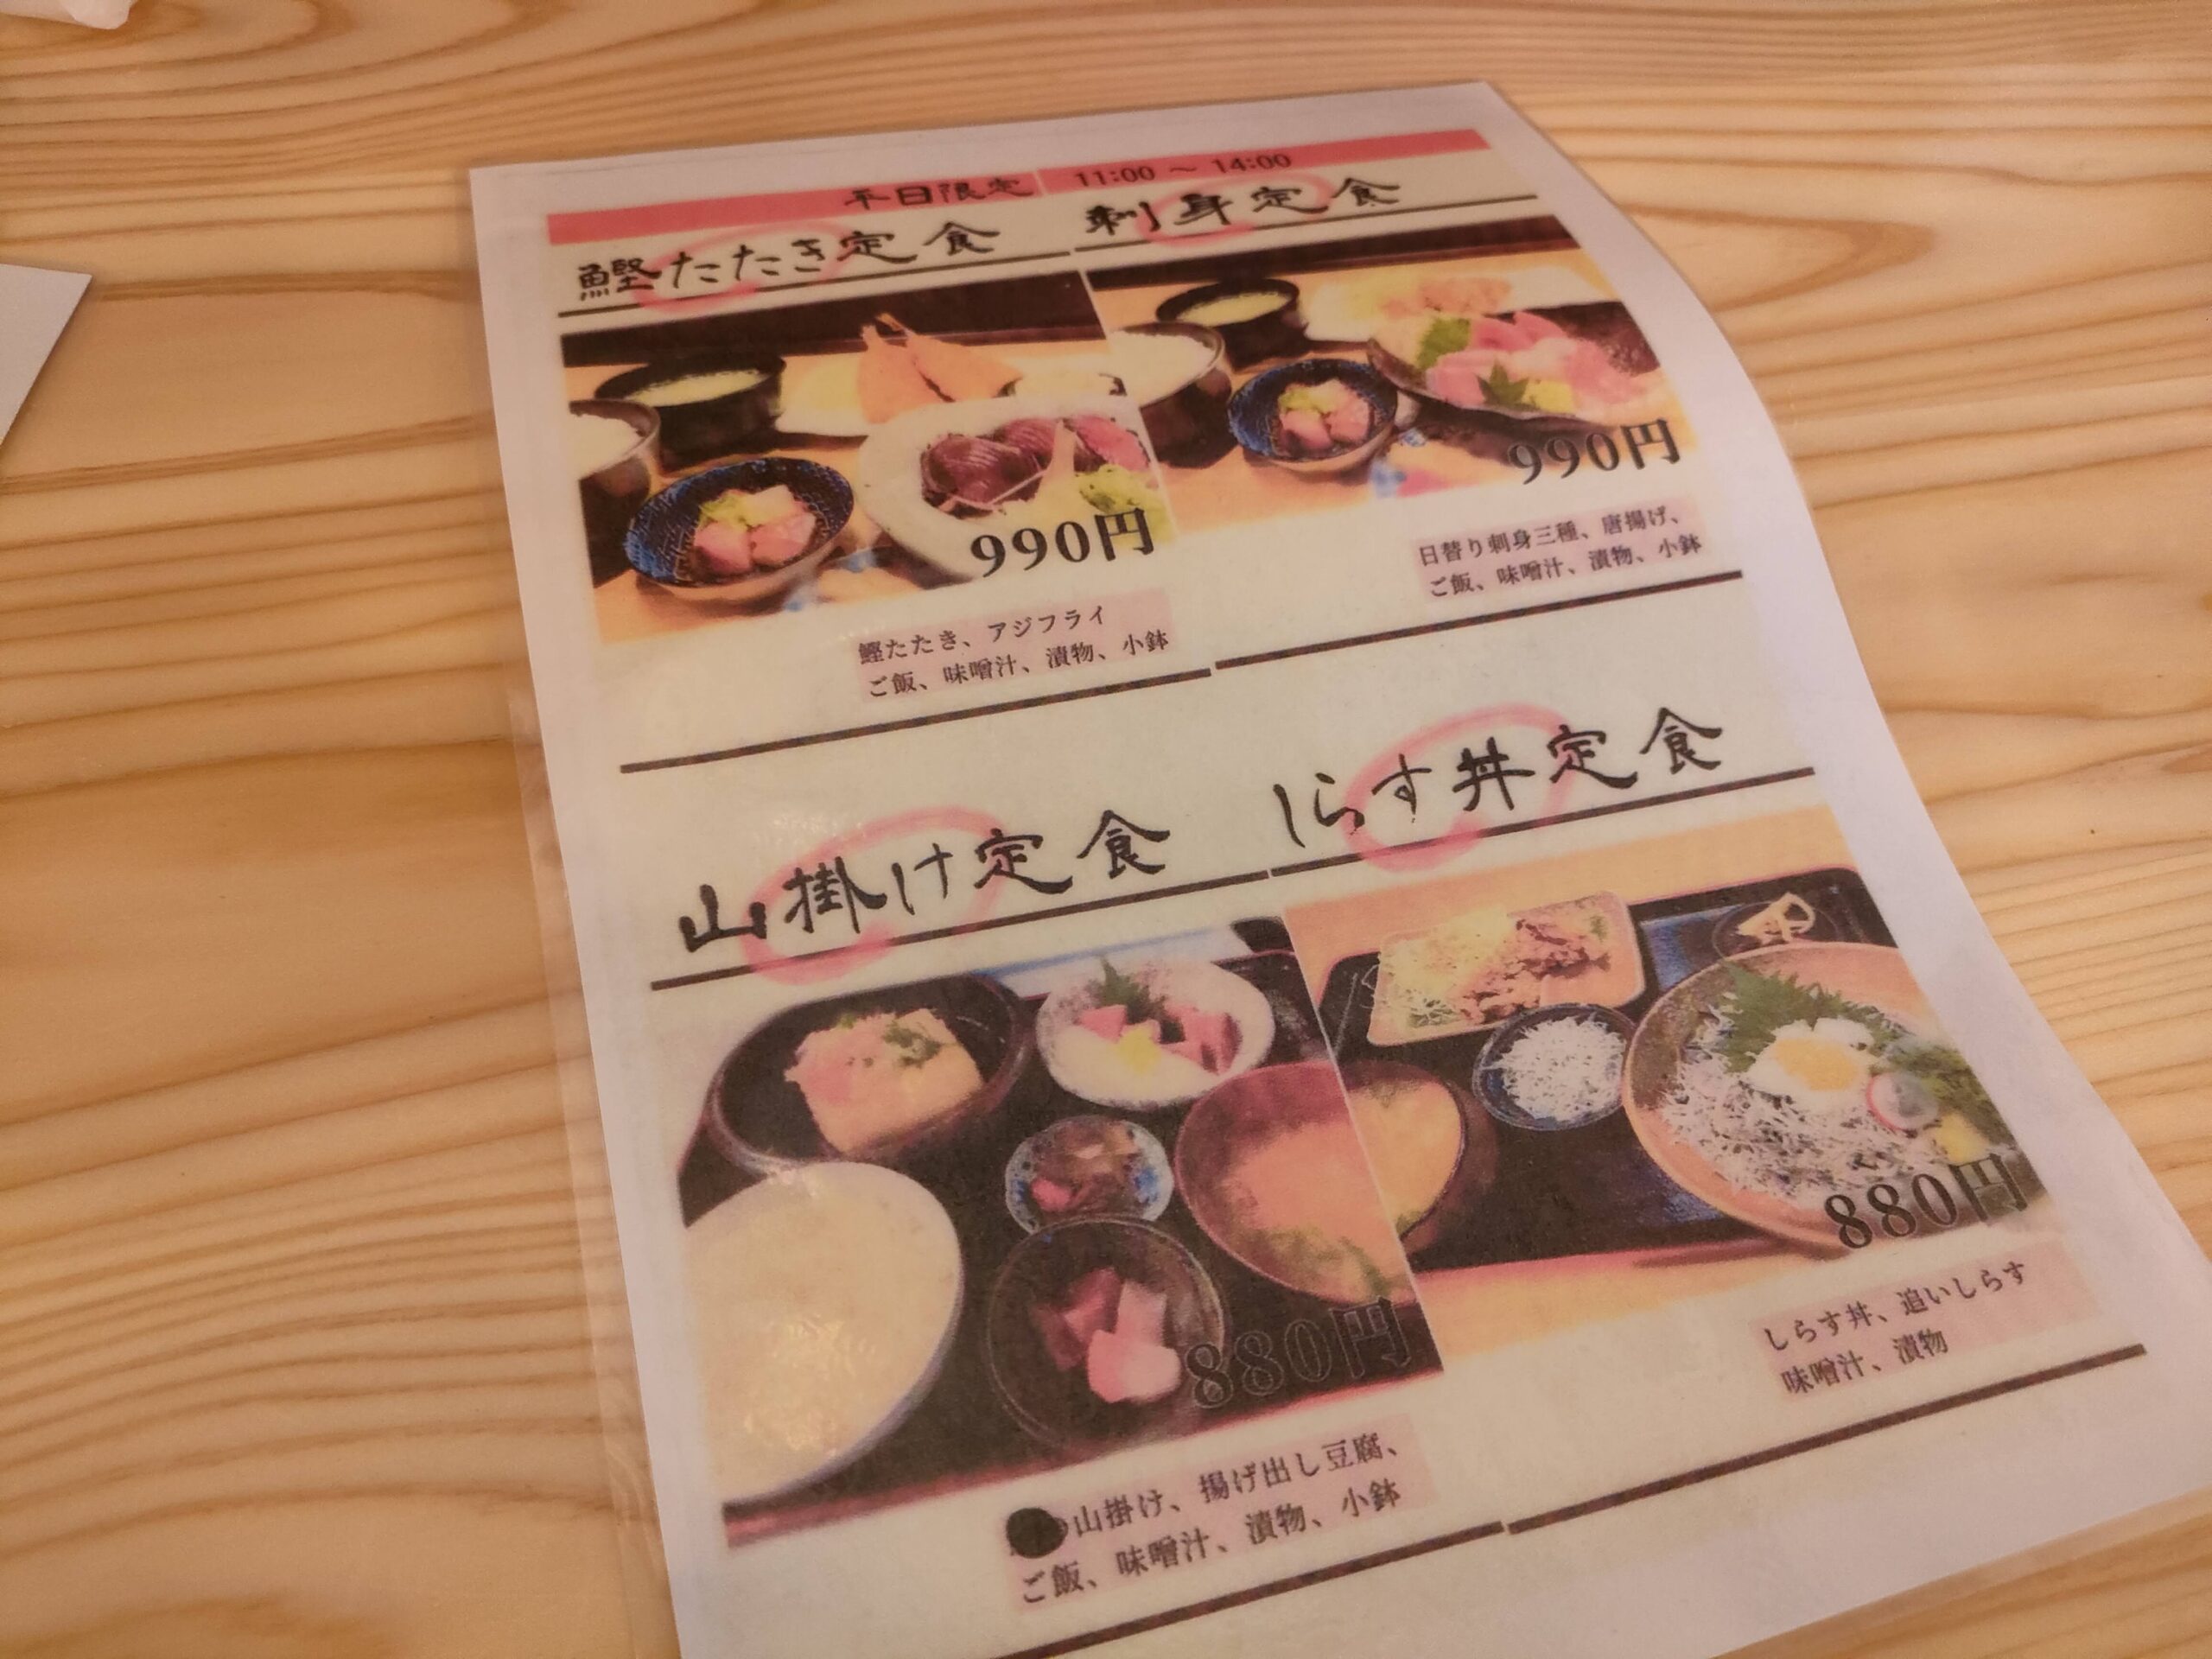 平日限定 11:00 ～ 14:00
鰹たたき定食
990円
鰹たたき、アジフライ
ご飯、味噌汁、漬物、小鉢
刺身定食
990円
日替り刺身三種、唐揚げ、
ご飯、味噌汁、漬物、小鉢
山掛け定食
880円
山掛け、揚げ出し豆腐、
ご飯、味噌汁、漬物、小鉢
しらす丼定食
880円
しらす丼、追いしらす
味噌汁、漬物